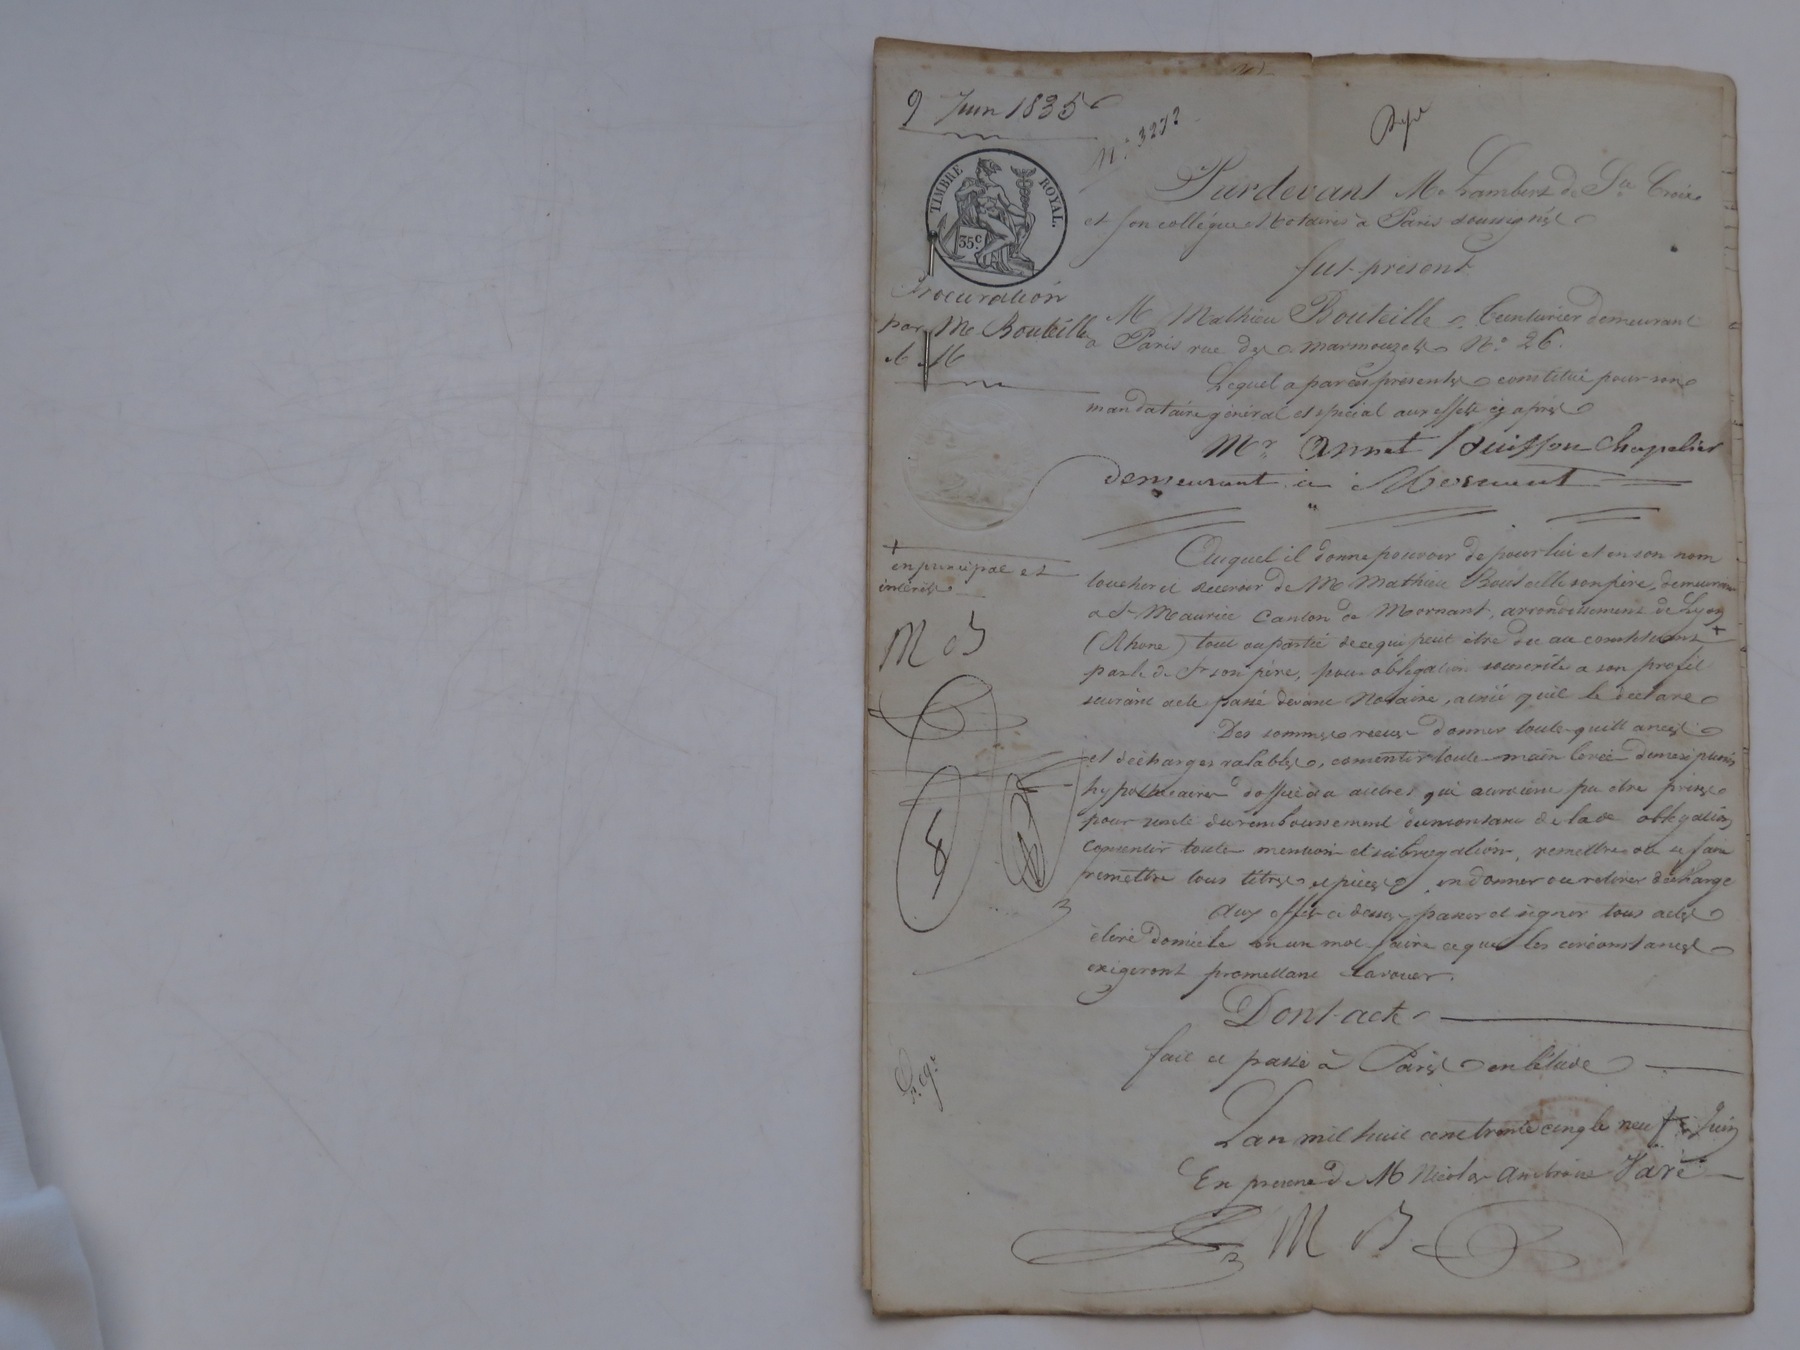 9 Juin 1835
N° 3272
TIMBRE ROYAL.
35 c
Procuration
par Mr Bouteille
à M
Pardevant Me Lambert de Ste Croix
et son collègue Notaires à Paris soussignés
fut présent
M Mathieu Bouteille, Teinturier demeurant
à Paris rue des Marmouzets N° 26.
Lequel a par ces présentes constitué pour son
mandataire général et spécial aux effets cy après
Mr. Annet Chapelier
demeurant à Mornant
Auquel il donne pouvoir de pour lui et en son nom
toucher et recevoir de M Mathieu Bouteille son père, demeurant
à St Maurice Canton de Mornant, arrondissement de Lyon
(Rhone) tout ou partie de ce qui peut être dû au constituant +
par le d. Sr son père, pour obligation souscrite à son profit
suivant acte passé devant Notaire, ainsi qu'il le déclare
+ en principal et
intérêts
M B
Des sommes reçues donner toutes quittances
et décharges valables, consentir toute main levée d'inscriptions
hypothécaires d'office ou autres qui auraient pu être prises
pour sureté du remboursement du montant de lade obligation
consentir toute mention et subrogation, remettre ou se faire
remettre tous titres et pièces, en donner ou retirer décharge
Aux effets ci dessus passer et signer tous actes
élire domicile en un mot faire ce que les circonstances
exigeront promettant l'avouer.
Dont acte
fait et passé à Paris en l'Etude
L'an mil huit cent trente cinq le neuf Juin
En présence de M Nicolas Ambroise
M B